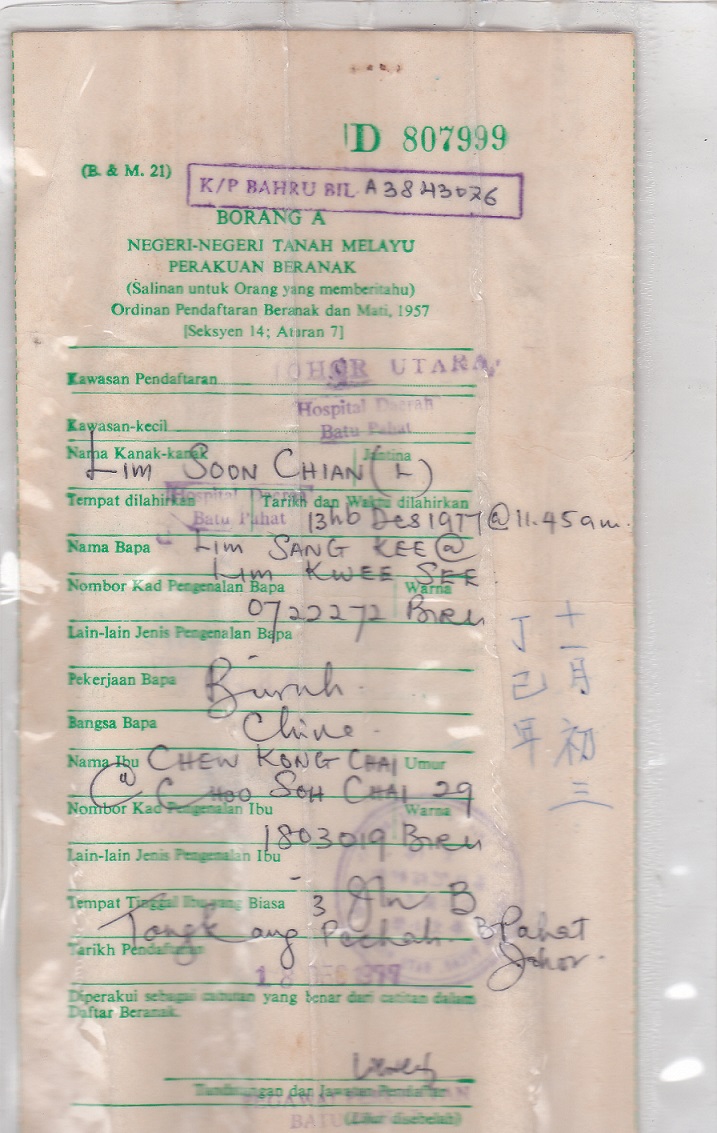 D 807999
(B. & M. 21)
K/P BAHRU BIL A3843076
BORANG A
NEGERI-NEGERI TANAH MELAYU
PERAKUAN BERANAK
(Salinan untuk Orang yang memberitahu)
Ordinan Pendaftaran Beranak dan Mati, 1957
[Seksyen 14; Aturan 7]
Kawasan Pendaftaran JOHOR UTARA
Kawasan-kecil Hospital Daerah
Batu Pahat
Nama Kanak-kanak Jantina
LIM SOON CHIAN (L)
Tempat dilahirkan Tarikh dan Waktu dilahirkan
Hospital Daerah
Batu Pahat 13hb Des 1977 @ 11.45 am.
Nama Bapa LIM SANG KEE @
LIM KWEE SEE
Nombor Kad Pengenalan Bapa Warna
0722272 Biru
Lain-lain Jenis Pengenalan Bapa
Pekerjaan Bapa Buruh.
Bangsa Bapa China.
Nama Ibu CHEW KONG CHAI Umur
@ CHOO SOH CHAI 29
Nombor Kad Pengenalan Ibu Warna
1803019 Biru
Lain-lain Jenis Pengenalan Ibu
Tempat Tinggal Ibu yang Biasa 3 Jln B
Tongkang Pechah B Pahat
Johor.
Tarikh Pendaftaran
18 DES 1977
Diperakui sebagai cabutan yang benar dari catitan dalam
Daftar Beranak.
Tandatangan dan Jawatan Pendaftar
BATU
(Lihat disebelah)
十一月初三
丁己年